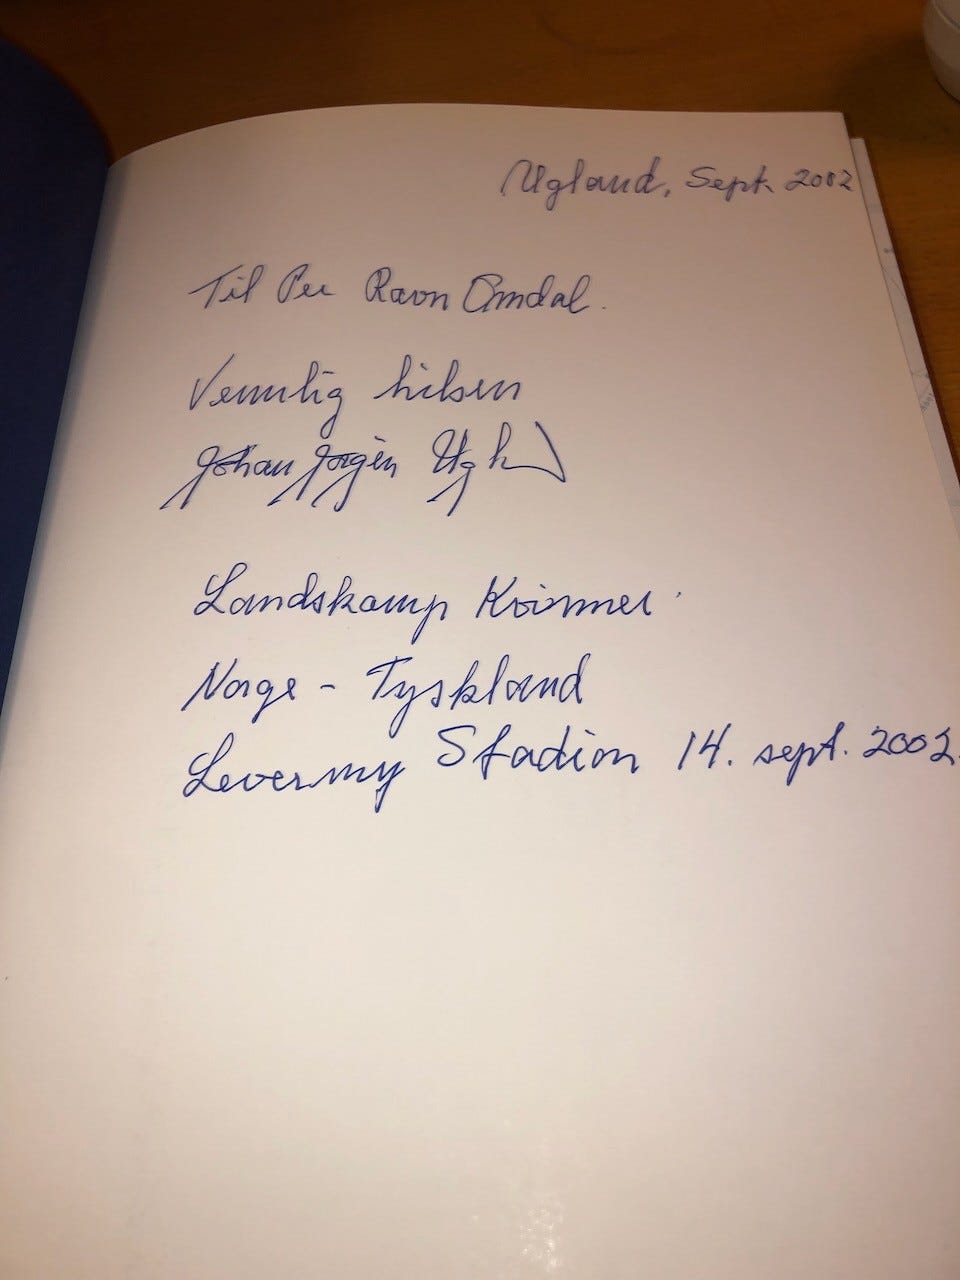 Ugland, Sept. 2002
Til Per Ravn Omdal.
Vennlig hilsen
Johan Jørgen Ugland
Landskamp Kvinner
Norge - Tyskland
Levermyr Stadion 14. sept. 2002.